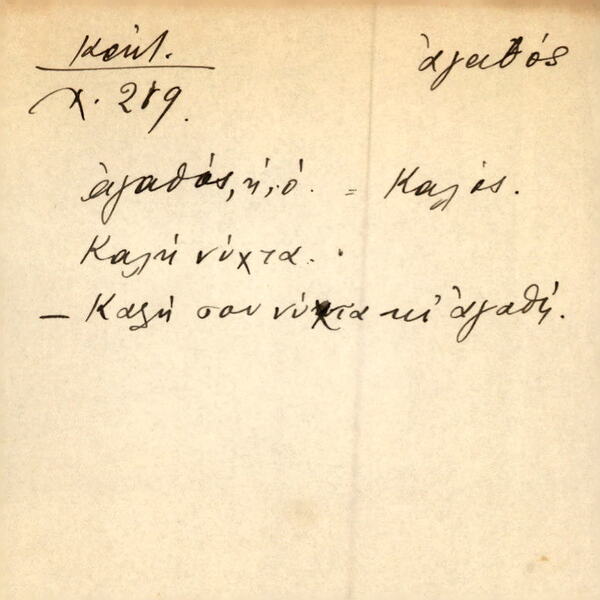 Κρήτ.
ἀγαθός
Χ. 289.
ἀγαθός, ή, ό. = Καλός.
Καλή νύχτα.
— Καλή σου νύχτα κι' ἀγαθή.